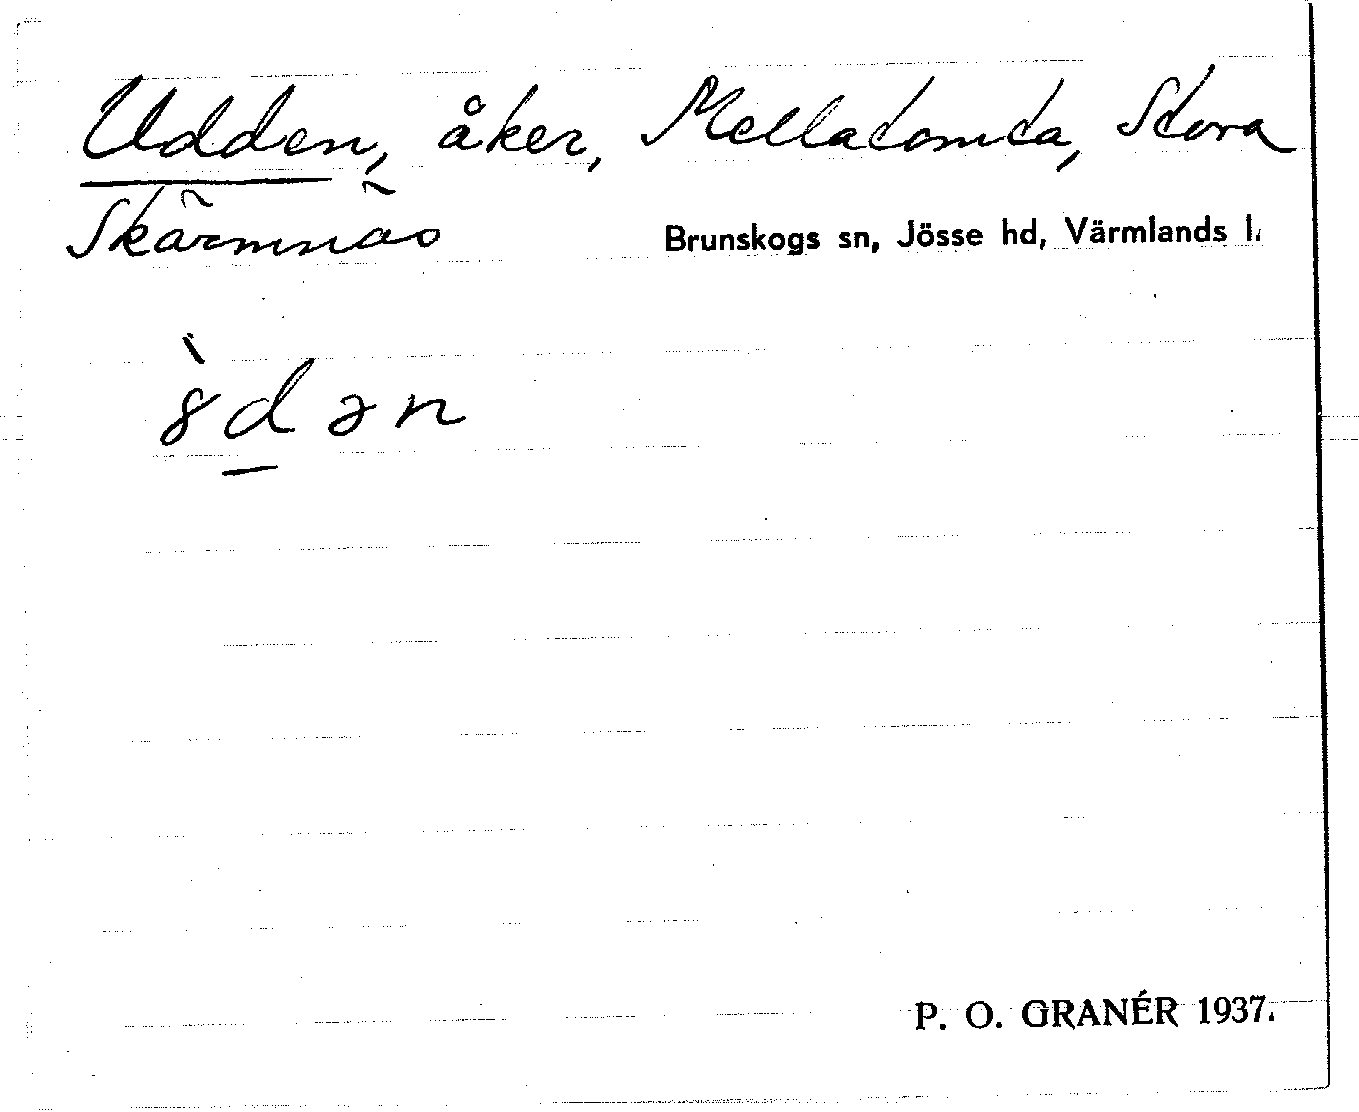 Udden, åker, Mellatomta, Stora
Skärmnäs
Brunskogs sn, Jösse hd, Värmlands l.
P. O. GRANÉR 1937.